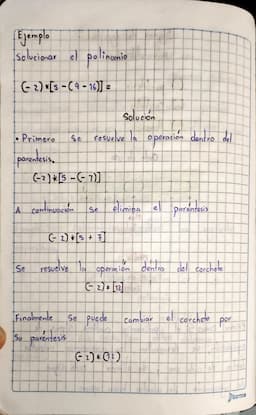 Ejemplo
Solucionar el polinomio
(-2)*[5-(9-16)]=
Solución
• Primero se resuelve la operación dentro del
paréntesis.
(-2)*[5-(-7)]
A continuación se elimina el paréntesis
(-2)*[5+7]
Se resuelve la operación dentro del corchete
(-2)*[12]
Finalmente se puede cambiar el corchete por
su paréntesis
(-2)*(12)